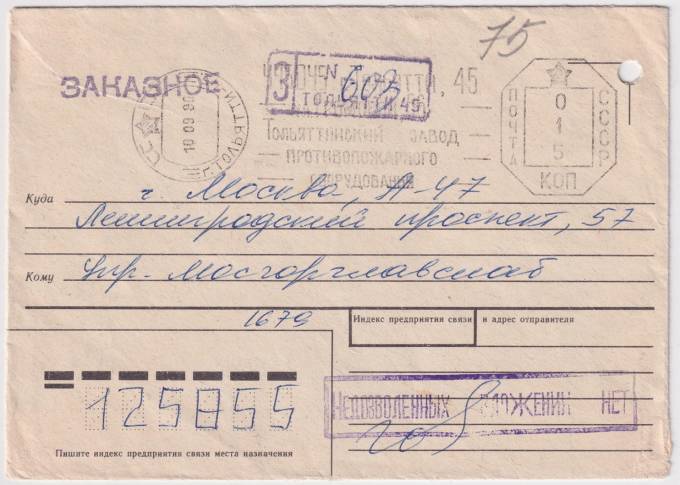 75
ЗАКАЗНОЕ
З № 603
ТОЛЬЯТТИ 45
Тольяттинский завод
противопожарного
оборудования
10 09 90
ПОЧТА
СССР
015
КОП
Куда г. Москва, А-47
Ленинградский проспект, 57
Кому Упр. Мосгорглавснаб
1679
Индекс предприятия связи и адрес отправителя
125855
НЕДОЗВОЛЕННЫХ ВЛОЖЕНИЙ НЕТ
Пишите индекс предприятия связи места назначения